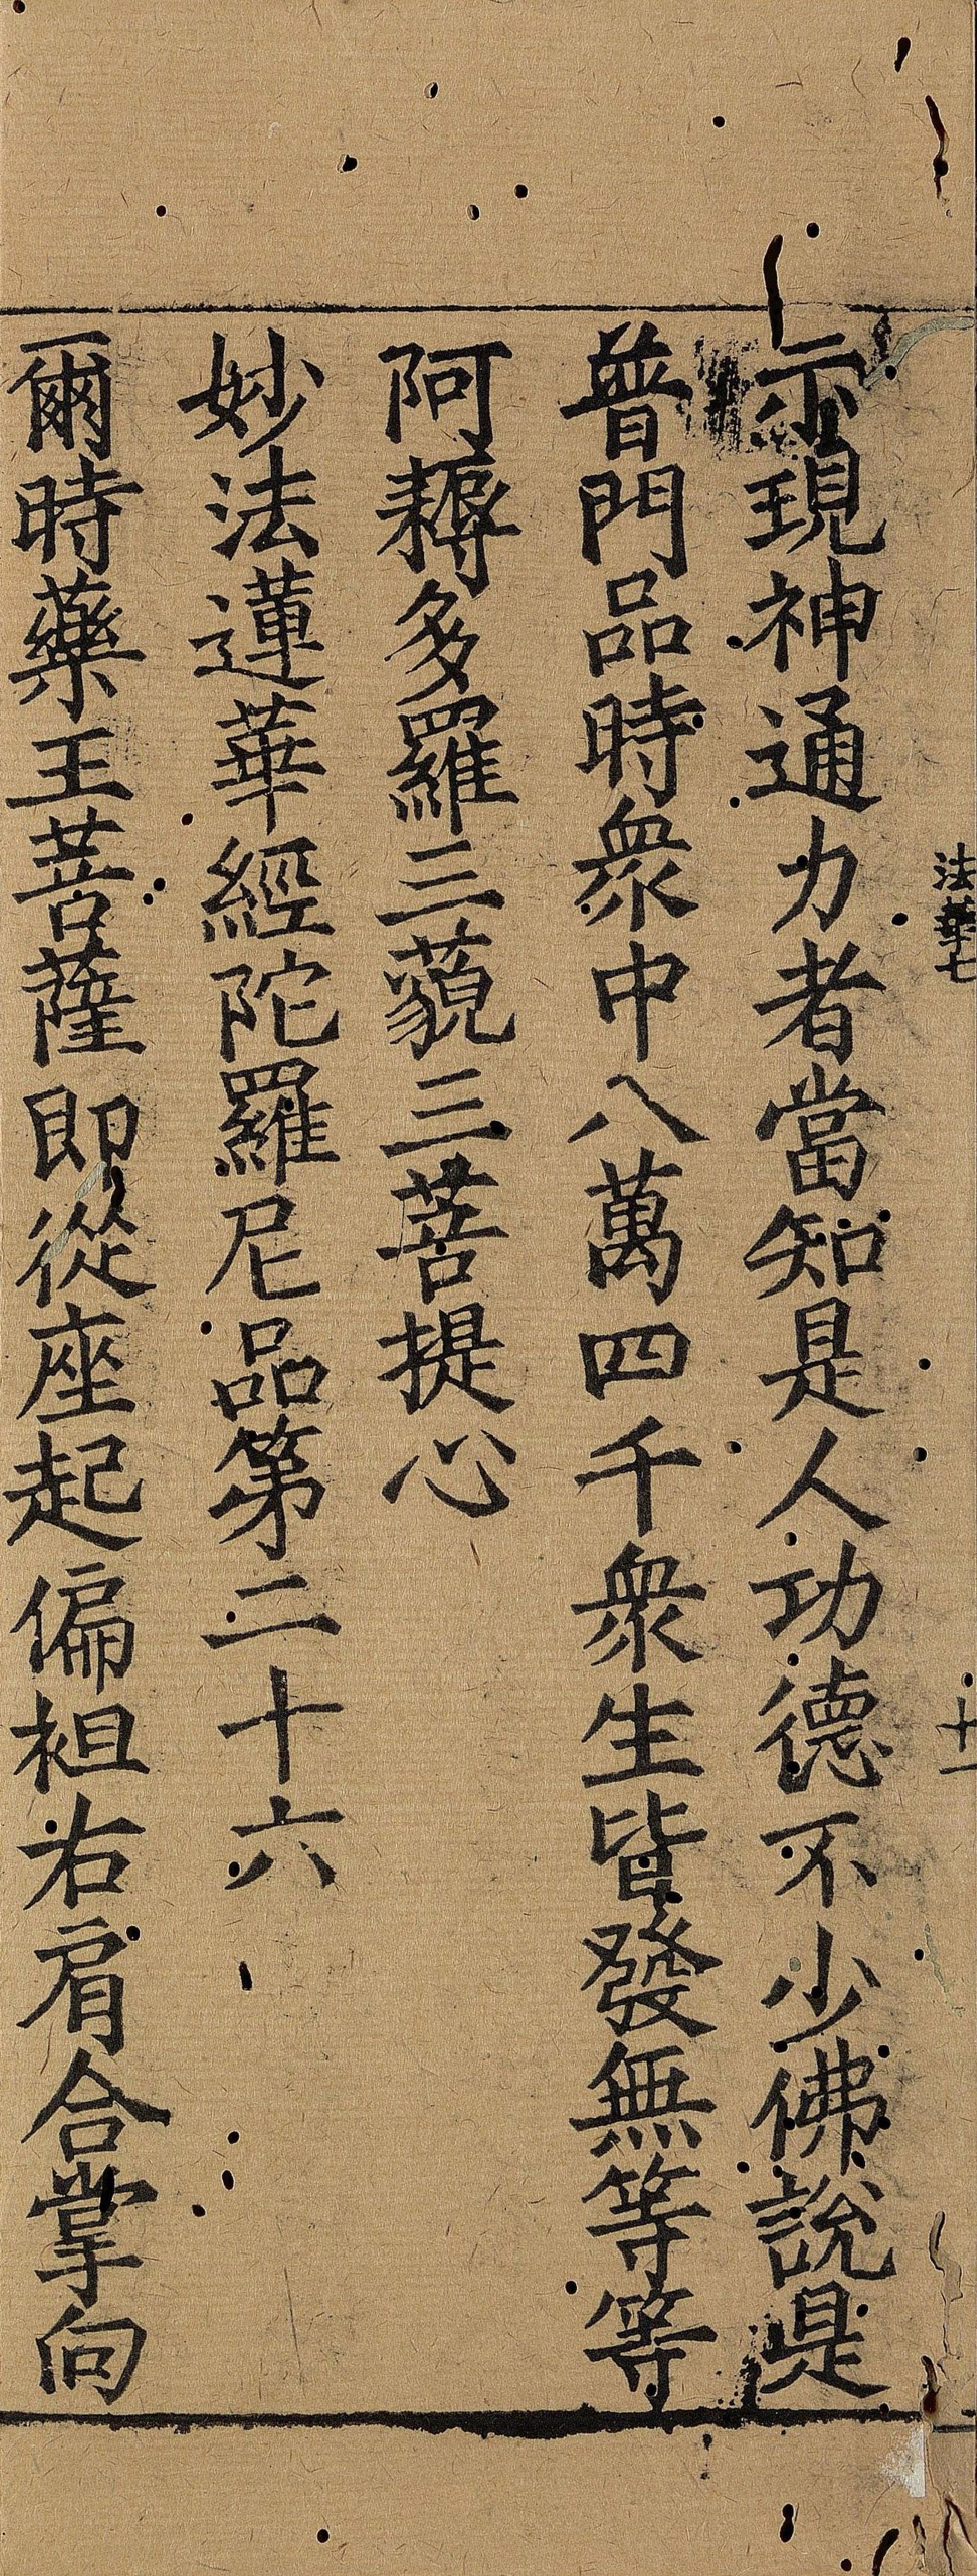 法華七
十一
示現神通力者當知是人功德不少佛說是
普門品時衆中八萬四千衆生皆發無等等
阿耨多羅三藐三菩提心
妙法蓮華經陀羅尼品第二十六
爾時藥王菩薩即從座起偏袒右肩合掌向